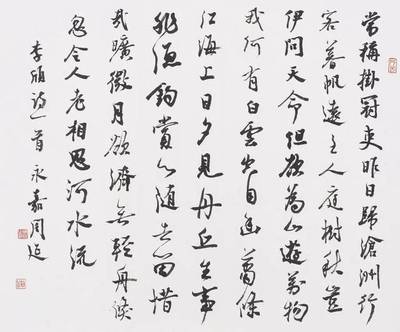 常稱掛冠吏昨日歸滄洲行
客暮帆遠主人庭樹秋豈
伊問天命但欲為山遊萬物
我何有白雲空自幽蕭條
江海上日夕見丹丘生事
非漁釣賞心隨去留惜
哉曠微月欲濟無輕舟倏
忽令人老相思河水流
李頎詩一首永嘉周延